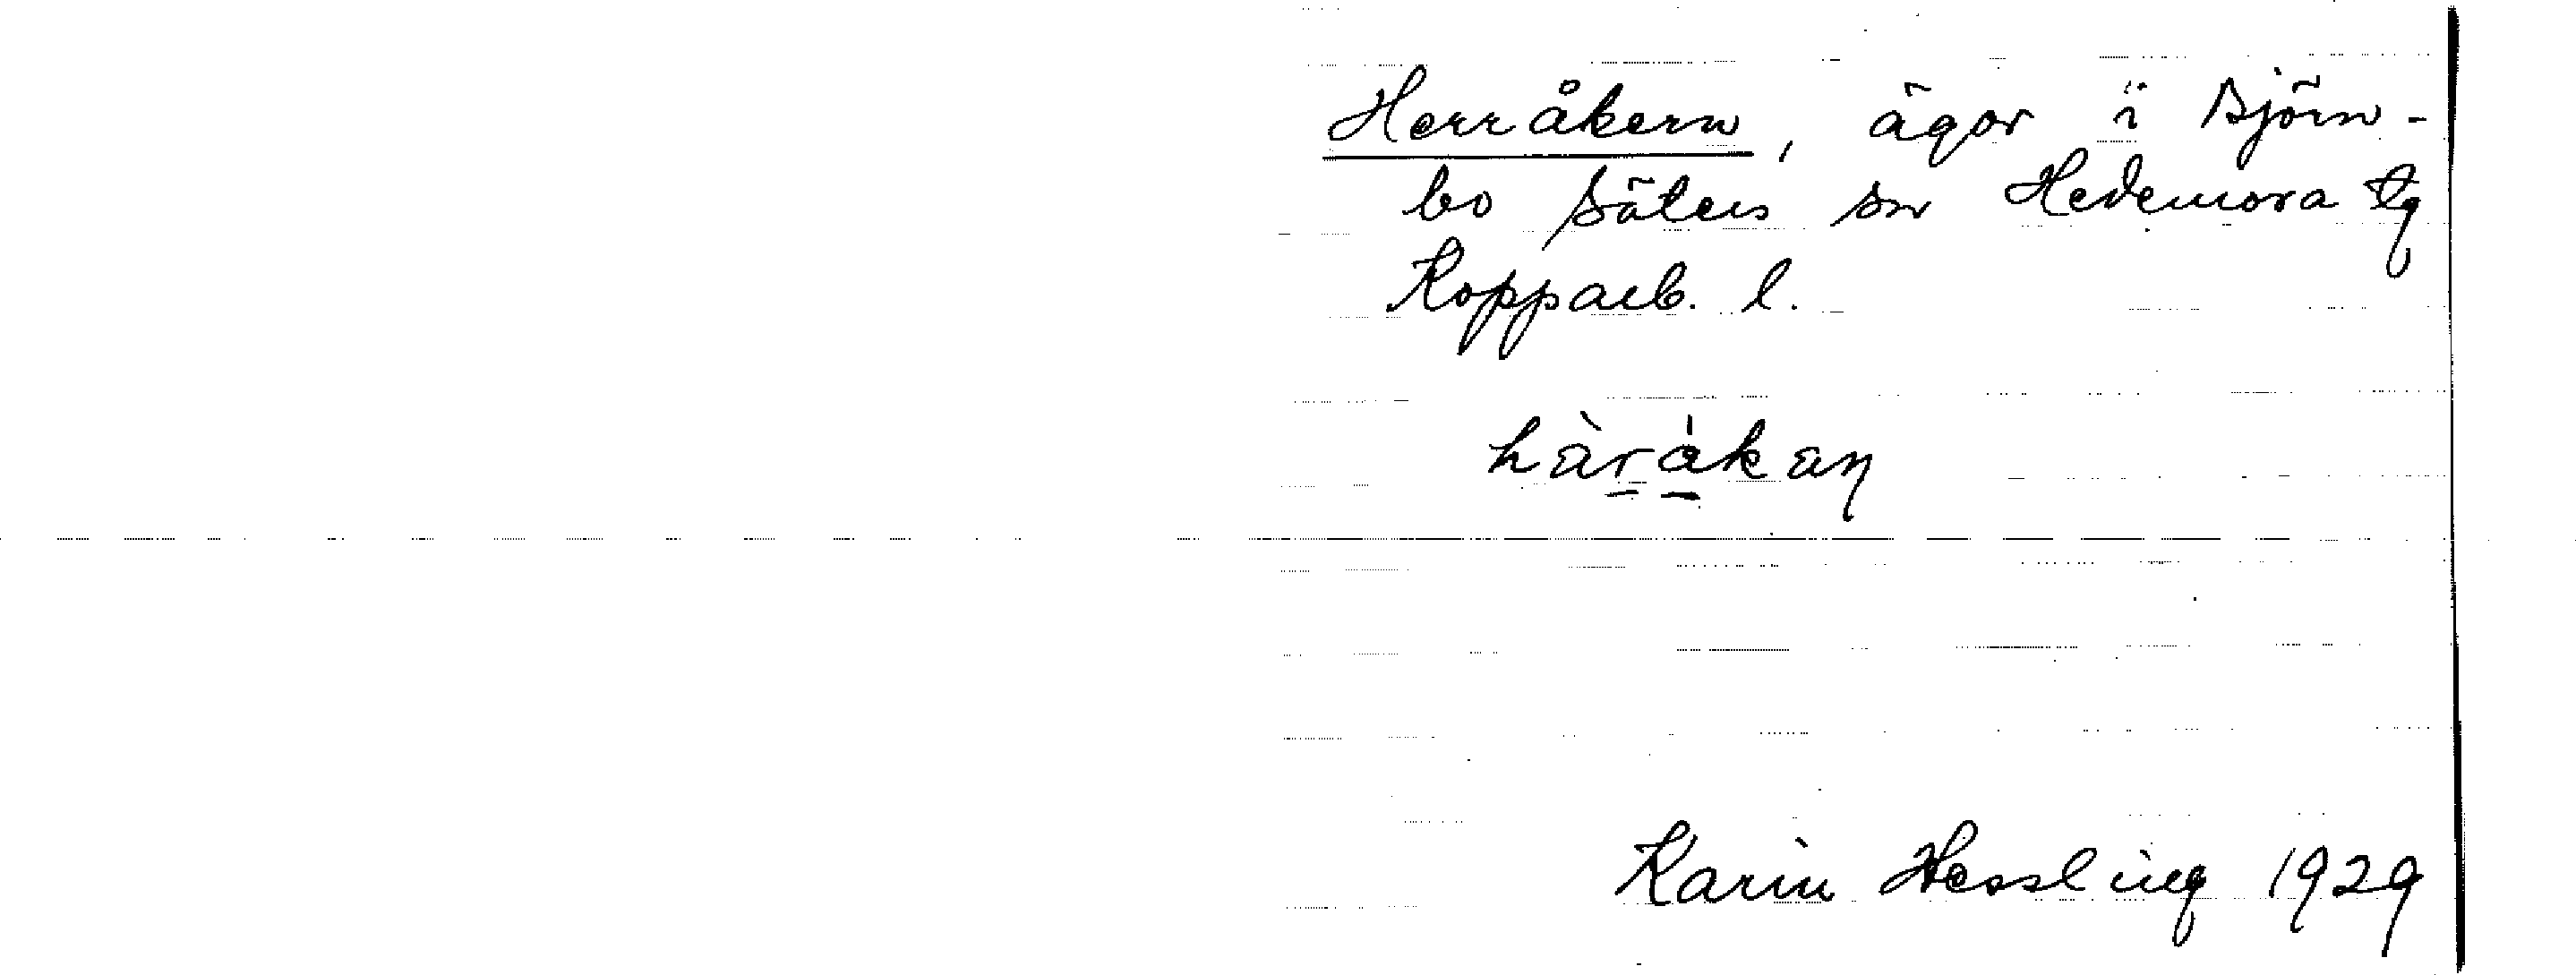 Herråkern, ägor i Björn-
bo Säters sn Hedemora tg
Kopparb. l.
hàråkaɳ
Karin Hessling 1929